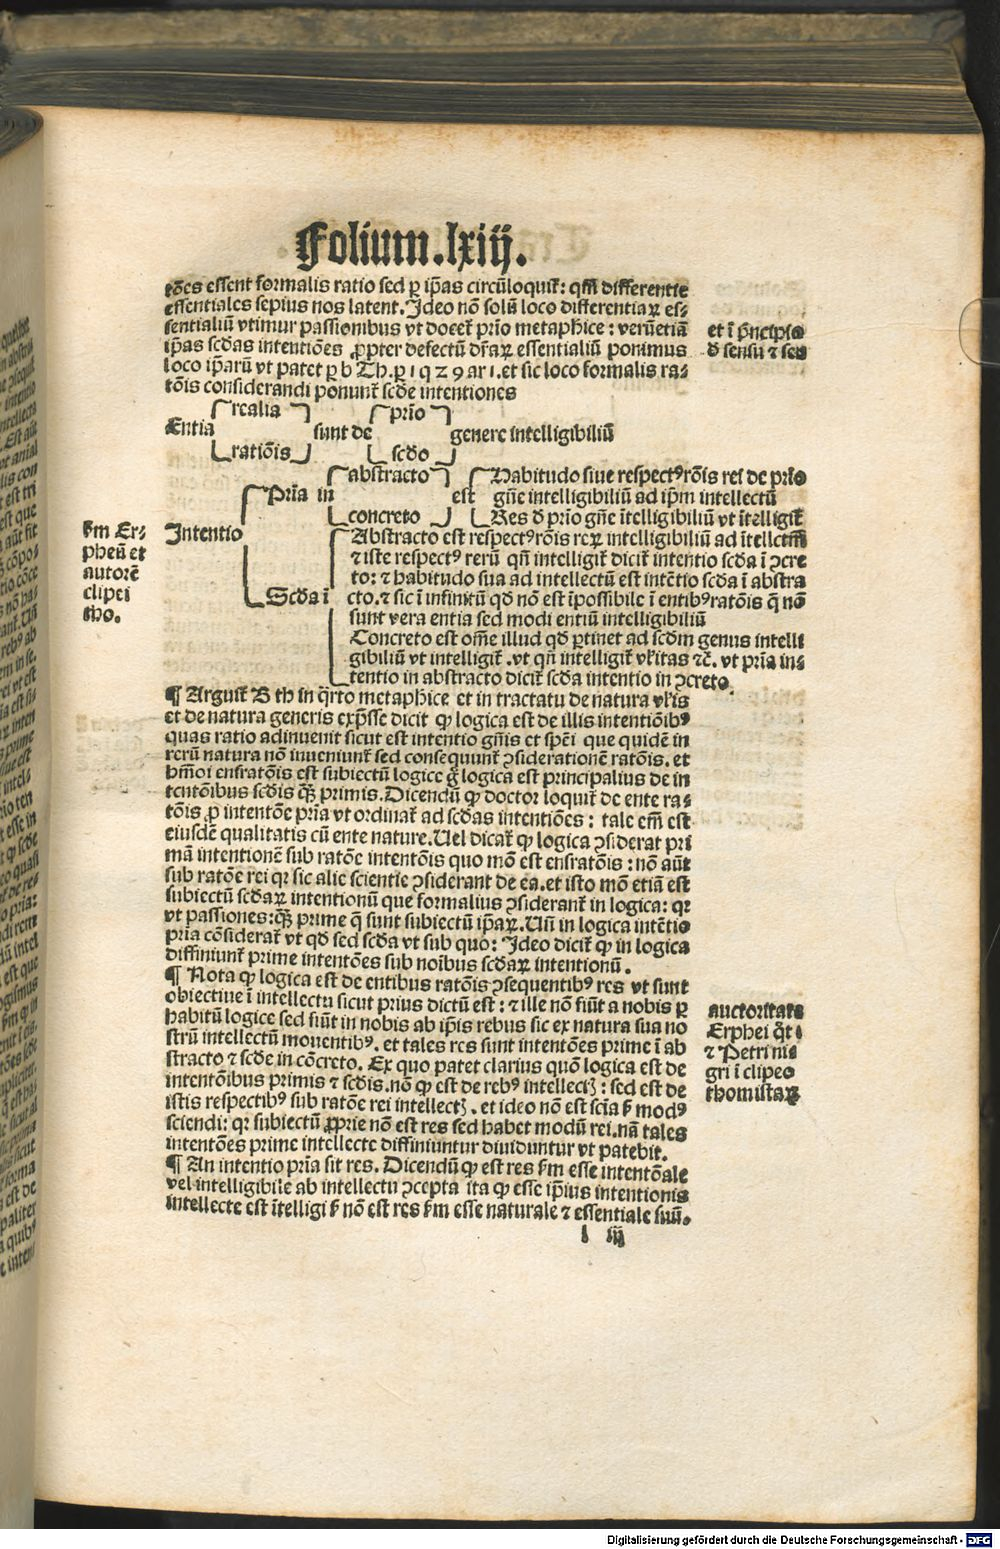 Folium.lxiij.
tões essent formalis ratio sed ꝑ ip̃as circũloquiť: qm̃ differentie
essentiales sepius nos latent. Ideo nõ solũ loco differentiaꝝ es⸗
sentialiũ vtimur passionibus vt doceť prĩo metaph̃ice: verũetiã
ip̃as scd̃as intentiões ꝓpter defectũ dr̃aꝝ essentialiũ ponimus
loco ip̃arũ vt patet ꝑ b Th. ꝑ 1 q 29 ar 1. et sic loco formalis ra⸗
tõis considerandi ponunť scd̃e intentiones
et ĩ pñcipio
đ sensu ⁊ sen
Entia
realia
ratiõis
sunt de
prĩo
scd̃o
genere intelligibiliũ
Intentio
Prĩa in
abstracto
concreto
est
Habitudo siue respectꝰ rõis rei de prĩo
gñe intelligibiliũ ad ip̃m intellectũ
Res đ prĩo gñe ĩtelligibiliũ vt ĩtelligiť
Scd̃a ĩ
Abstracto est respectꝰ rõis reꝝ intelligibiliũ ad ĩtellctũ
⁊ iste respectꝰ rerũ qñ intelligiť diciť intentio scd̃a ĩ ꝯcre
to: ⁊ habitudo sua ad intellectũ est intẽtio scd̃a ĩ abstra
cto. ⁊ sic ĩ infinitũ qd̃ nõ est ĩpossibile ĩ entibꝰ ratõis q̃ nõ
sunt vera entia sed modi entiũ intelligibiliũ
Concreto est om̃e illud qd̃ ꝑtinet ad scd̃m genus intelli
gibiliũ vt intelligiť. vt qñ intelligiť vĺitas ⁊c̃. vt prĩa in⸗
tentio in abstracto diciť scd̃a intentio in ꝯcreto.
ẜm Er⸗
pheũ et
autorẽ
clipei
tho.
¶ Arguiť B th in q̃rto metaph̃ice et in tractatu de natura vĺis
et de natura generis exp̃sse dicit ꝙ logica est de illis intentiõibꝰ
quas ratio adinuenit sicut est intentio gñis et sp̃ei que quidẽ in
rerũ natura nõ inueniunť sed consequunť ꝯsiderationẽ ratõis. et
hm̃oi ensratõis est subiectũ logice g̃ logica est principalius de in
tentõibus scd̃is q̃ꝫ primis. Dicendũ ꝙ doctor loquiť de ente ra⸗
tõis ꝑ intentõe prĩa vt ordinať ad scd̃as intentiões: tale em̃ est
eiusdẽ qualitatis cũ ente nature. Uel dicať ꝙ logica ꝯsiderat pri
mã intentionẽ sub ratõe intentõis quo mõ est ensratõis: nõ aũt
sub ratõe rei qꝛ sic alie scientie ꝯsiderant de ea. et isto mõ etiã est
subiectũ scd̃aꝝ intentionũ que formalius ꝯsideranť in logica: qꝛ
vt passiones: q̃ꝫ prime q̃ sunt subiectũ ip̃aꝝ. Uñ in logica intẽtio
prĩa cõsiderať vt qd̃ sed scd̃a vt sub quo: Ideo diciť ꝙ in logica
diffiniunť prime intentões sub noĩbus scd̃aꝝ intentionũ.
¶ Nota ꝙ logica est de entibus ratõis ꝯsequentibꝰ res vt sunt
obiectiue ĩ intellectu sicut prius dictũ est: ⁊ ille nõ fiũt a nobis ꝑ
habitũ logice sed fiũt in nobis ab ip̃is rebus sic ex natura sua no
strũ intellectũ mouentibꝰ. et tales res sunt intentões prime ĩ ab
stracto ⁊ scd̃e in cõcreto. Ex quo patet clarius quõ logica est de
intentõibus primis ⁊ scd̃is. nõ ꝙ est de rebꝰ intellectꝫ: sed est de
istis respectibꝰ sub ratõe rei intellectꝫ. et ideo nõ est scĩa ẜ modꝰ
sciendi: qꝛ subiectũ ꝓprie nõ est res sed habet modũ rei. nã tales
intentões prime intellecte diffiniuntur diuiduntur vt patebit.
auctoritate
Erphei q̃t ĩ
⁊ Petri ni⸗
gri ĩ clipeo
thomistaꝝ
¶ An intentio prĩa sit res. Dicendũ ꝙ est res ẜm esse intentõale
vel intelligibile ab intellectu ꝯcepta ita ꝙ esse ip̃ius intentionis
intellecte est ĩtelligi ẜ nõ est res ẜm esse naturale ⁊ essentiale suũ.
l iij
Digitalisierung gefördert durch die Deutsche Forschungsgemeinschaft - DFG